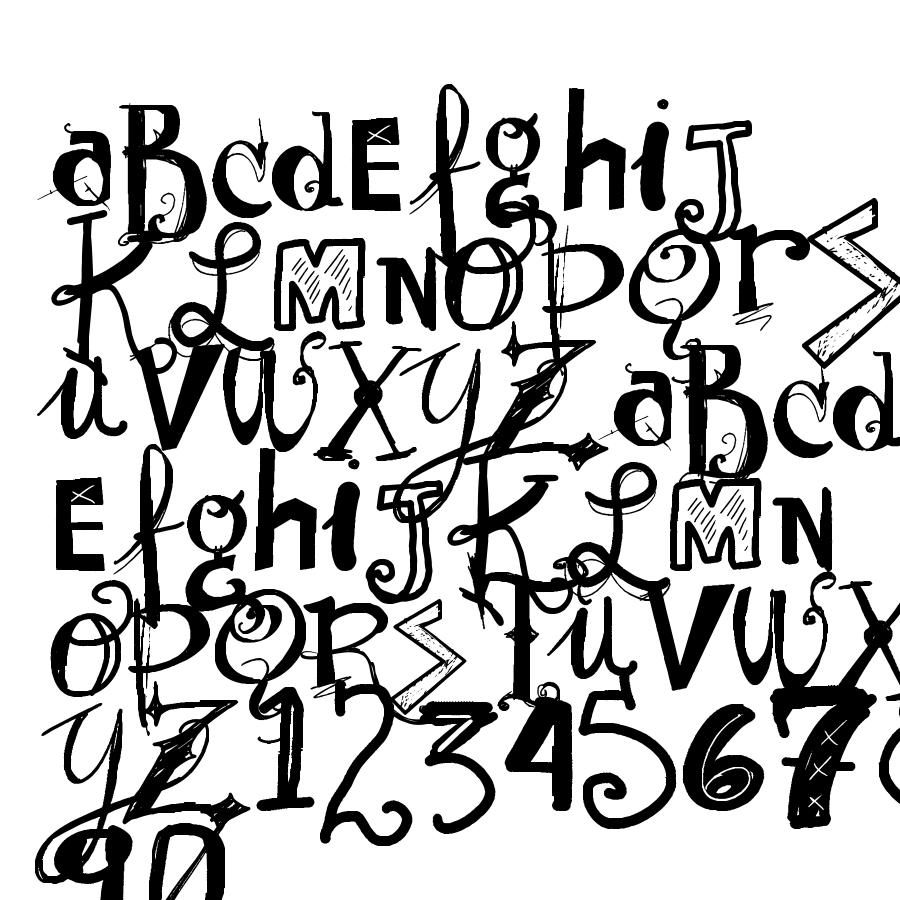 aBcdEfghiJ
KLMNOPQrS
uVWXyZaBcd
EfghiJKLMN
OPQRSTuVWX
yZ12345678
90